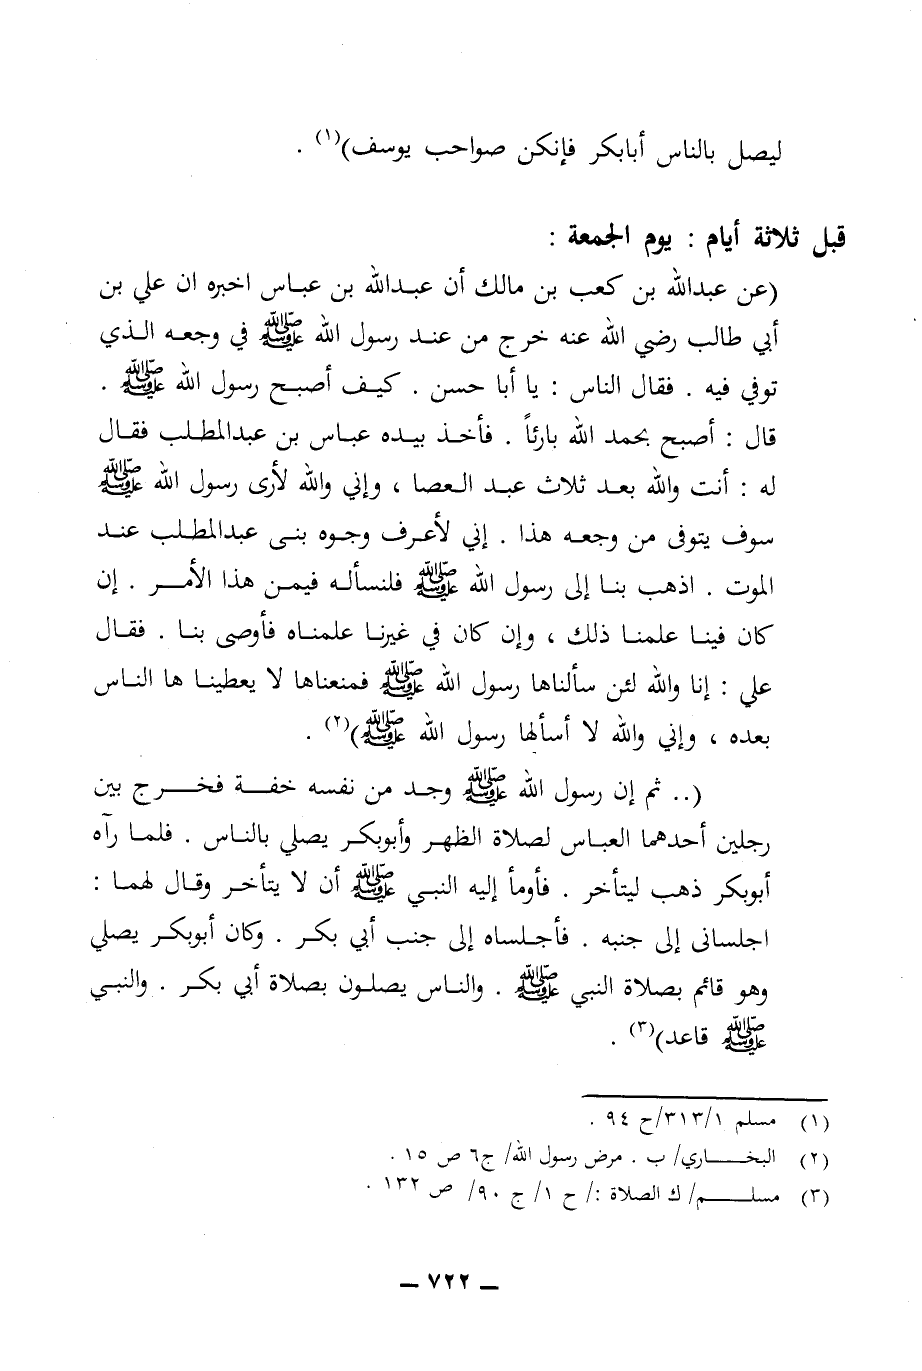 ليصل بالناس أبابكر فإنكن صواحب يوسف)(١) .
قبل ثلاثة أيام : يوم الجمعة :
(عن عبدالله بن كعب بن مالك أن عبدالله بن عباس اخبره ان علي بن
أبي طالب رضي الله عنه خرج من عند رسول الله ﷺ في وجعه الذي
توفي فيه . فقال الناس : يا أبا حسن . كيف أصبح رسول الله ﷺ .
قال : أصبح بحمد الله بارئاً . فأخذ بيده عباس بن عبدالمطلب فقال
له : أنت والله بعد ثلاث عبد العصا ، وإني والله لأرى رسول الله ﷺ
سوف يتوفى من وجعه هذا . إني لأعرف وجوه بنى عبدالمطلب عند
الموت . اذهب بنا إلى رسول الله ﷺ فلنسأله فيمن هذا الأمر . إن
كان فينا علمنا ذلك ، وإن كان في غيرنا علمناه فأوصى بنا . فقال
علي : إنا والله لئن سألناها رسول الله ﷺ فمنعناها لا يعطينا ها الناس
بعده ، وإني والله لا أسألها رسول الله ﷺ)(٢) .
(.. ثم إن رسول الله ﷺ وجد من نفسه خفة فخرج بين
رجلين أحدهما العباس لصلاة الظهر وأبوبكر يصلي بالناس . فلما رآه
أبوبكر ذهب ليتأخر . فأومأ إليه النبي ﷺ أن لا يتأخر وقال لهما :
اجلسانى إلى جنبه . فأجلساه إلى جنب أبي بكر . وكان أبوبكر يصلي
وهو قائم بصلاة النبي ﷺ . والناس يصلون بصلاة أبي بكر . والنبي
ﷺ قاعد)(٣) .
(١) مسلم ٣١٣/١/ح ٩٤ .
(٢) البخاري/ ب . مرض رسول الله/ ج٦ ص ١٥ .
(٣) مسلم/ ك الصلاة :/ ح ١/ ج ٩٠/ ص ١٣٢ .
ــ ٧٢٢ ــ